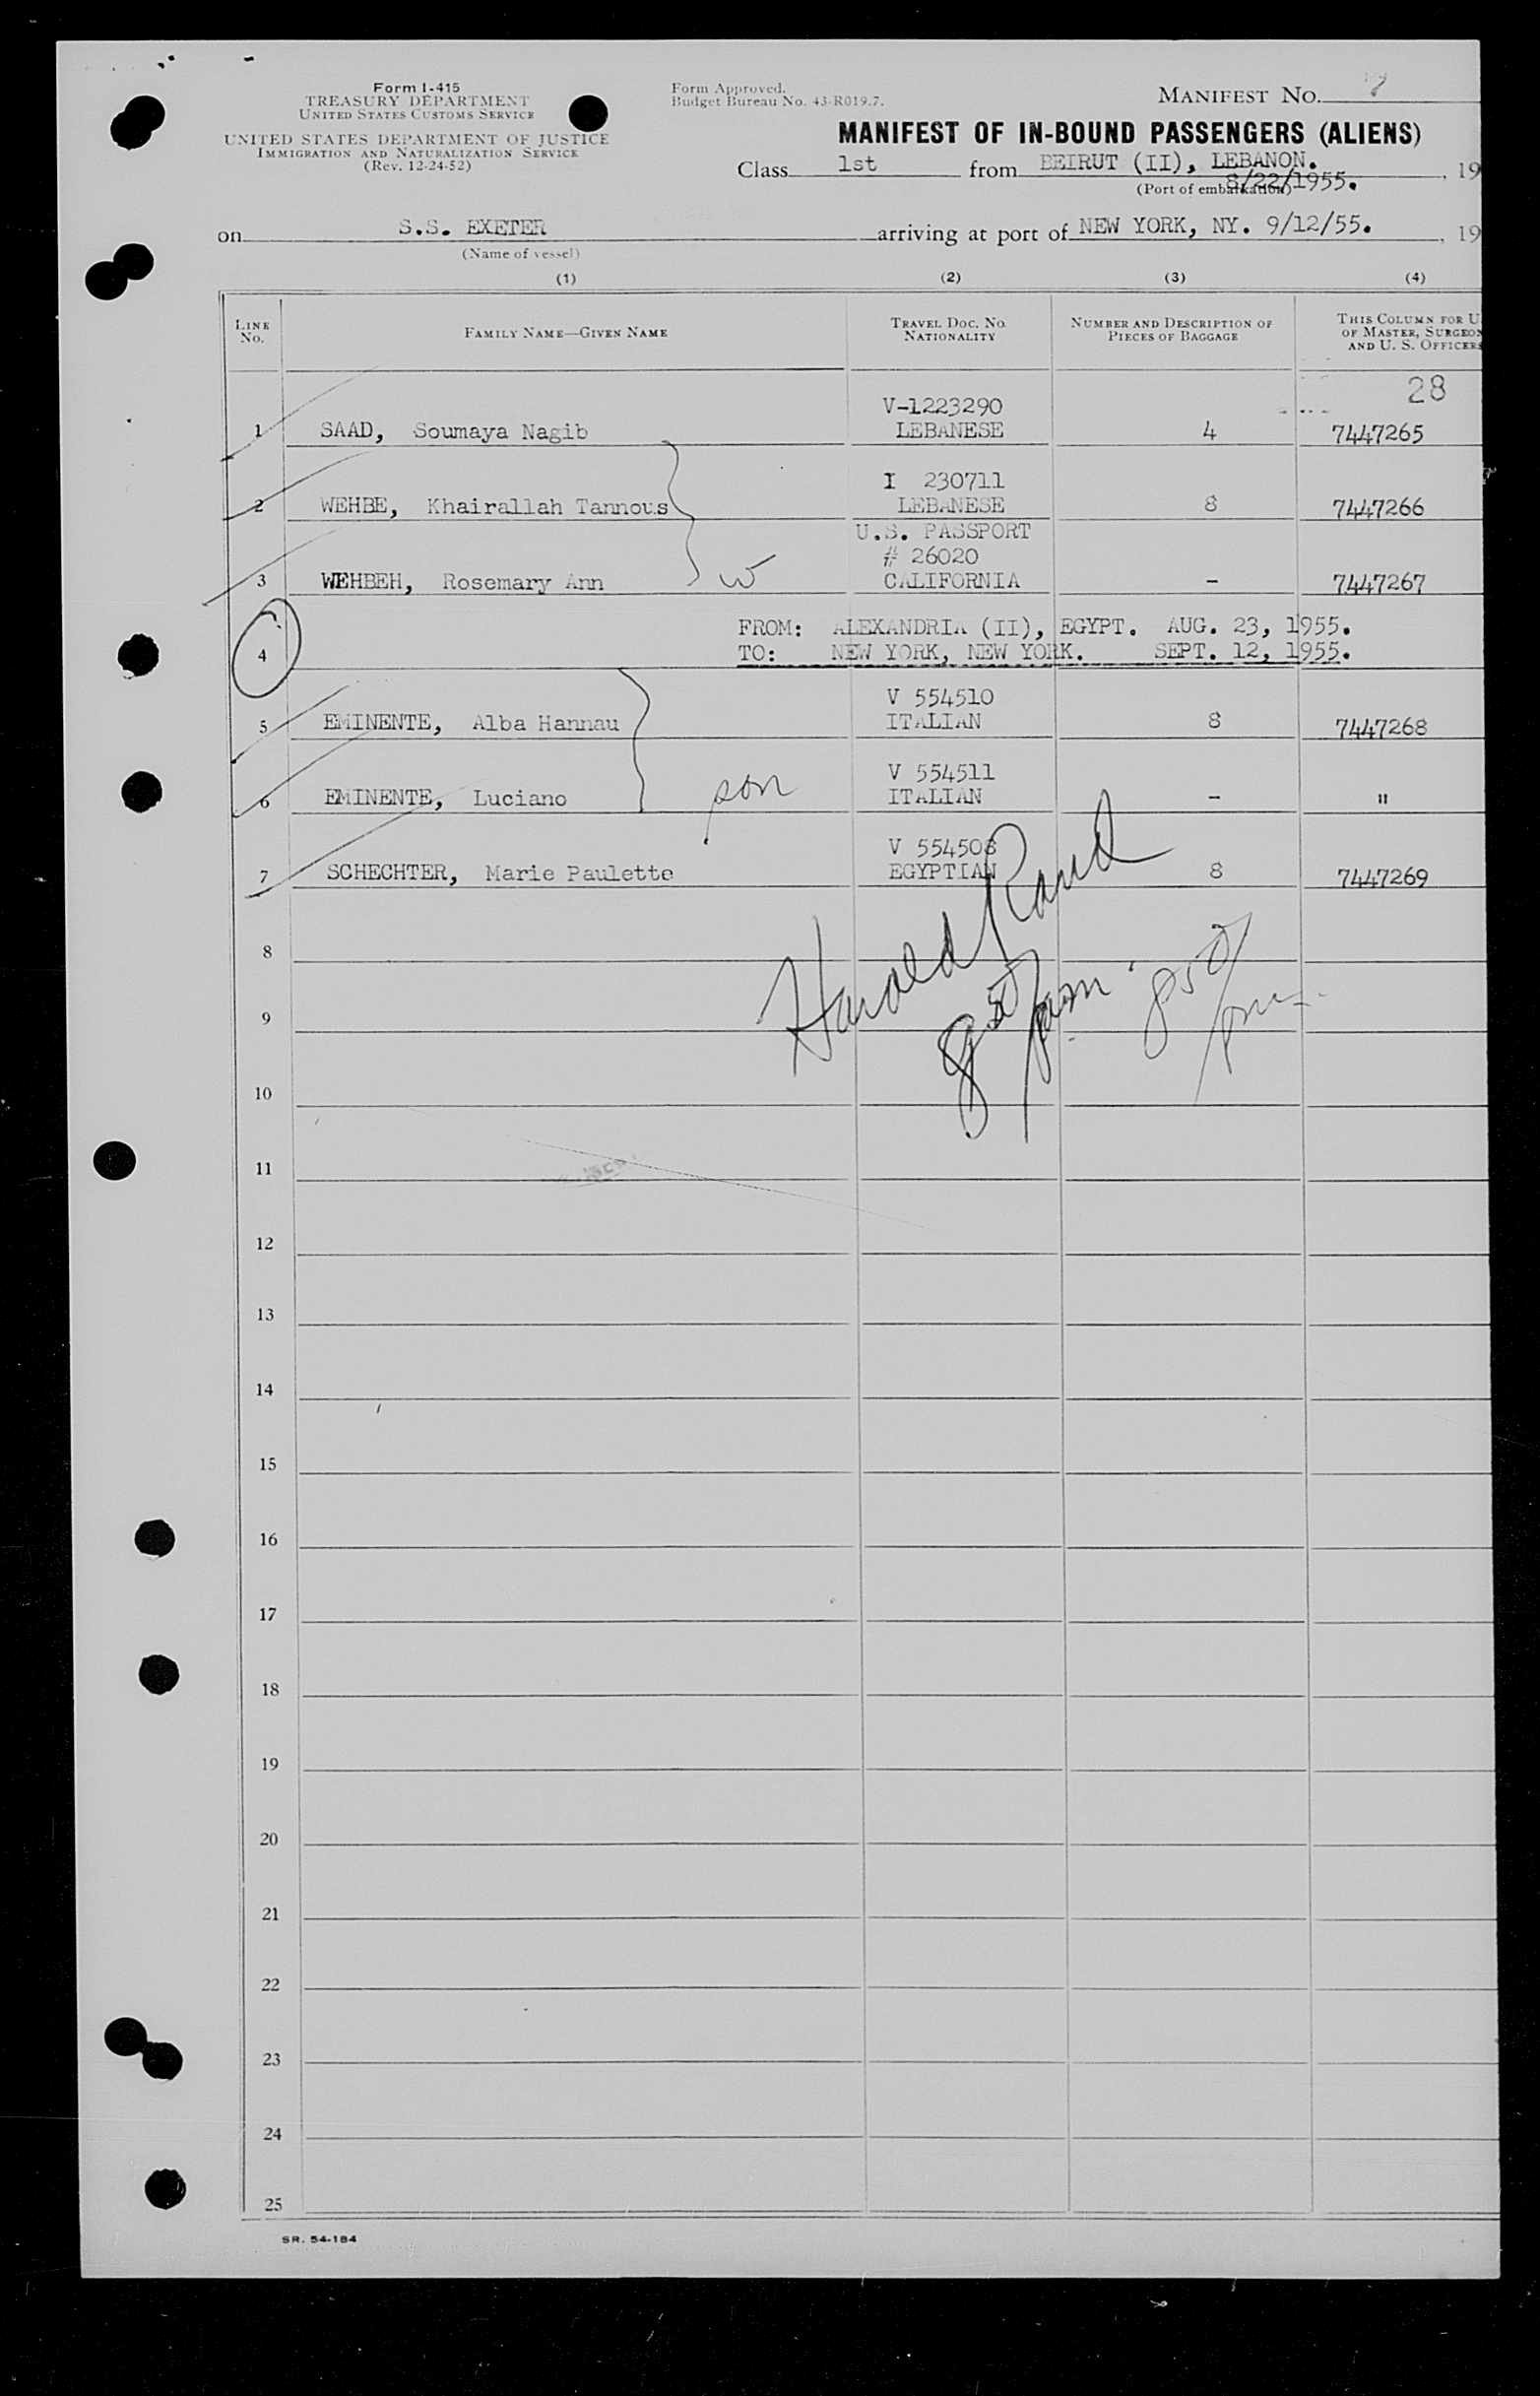 Form I-415
TREASURY DEPARTMENT
UNITED STATES CUSTOMS SERVICE
UNITED STATES DEPARTMENT OF JUSTICE
IMMIGRATION AND NATURALIZATION SERVICE
(Rev. 12-24-52)
Form Approved.
Budget Bureau No. 43-R019.7.
MANIFEST NO. 7
MANIFEST OF IN-BOUND PASSENGERS (ALIENS)
Class 1st from BEIRUT (II), LEBANON. , 19
(Port of embarkation) 8/22/1955.
on S.S. EXETER arriving at port of NEW YORK, NY. 9/12/55. , 19
(Name of vessel)
(1) (2) (3) (4)
LINE NO. FAMILY NAME—GIVEN NAME TRAVEL DOC. NO. NATIONALITY NUMBER AND DESCRIPTION OF PIECES OF BAGGAGE THIS COLUMN FOR U OF MASTER, SURGEON AND U. S. OFFICERS
28
V-1223290
1 SAAD, Soumaya Nagib LEBANESE 4 7447265
I 230711
2 WEHBE, Khairallah Tannous LEBANESE 8 7447266
U.S. PASSPORT
# 26020
3 WEHBEH, Rosemary Ann W CALIFORNIA - 7447267
FROM: ALEXANDRIA (II), EGYPT. AUG. 23, 1955.
4 TO: NEW YORK, NEW YORK. SEPT. 12, 1955.
V 554510
5 EMINENTE, Alba Hannau ITALIAN 8 7447268
V 554511
6 EMINENTE, Luciano son ITALIAN - "
V 554508
7 SCHECHTER, Marie Paulette EGYPTIAN 8 7447269
Harold Rand
8
850/am 850/pm
9
10
11
12
13
14
15
16
17
18
19
20
21
22
23
24
25
SR. 54-184